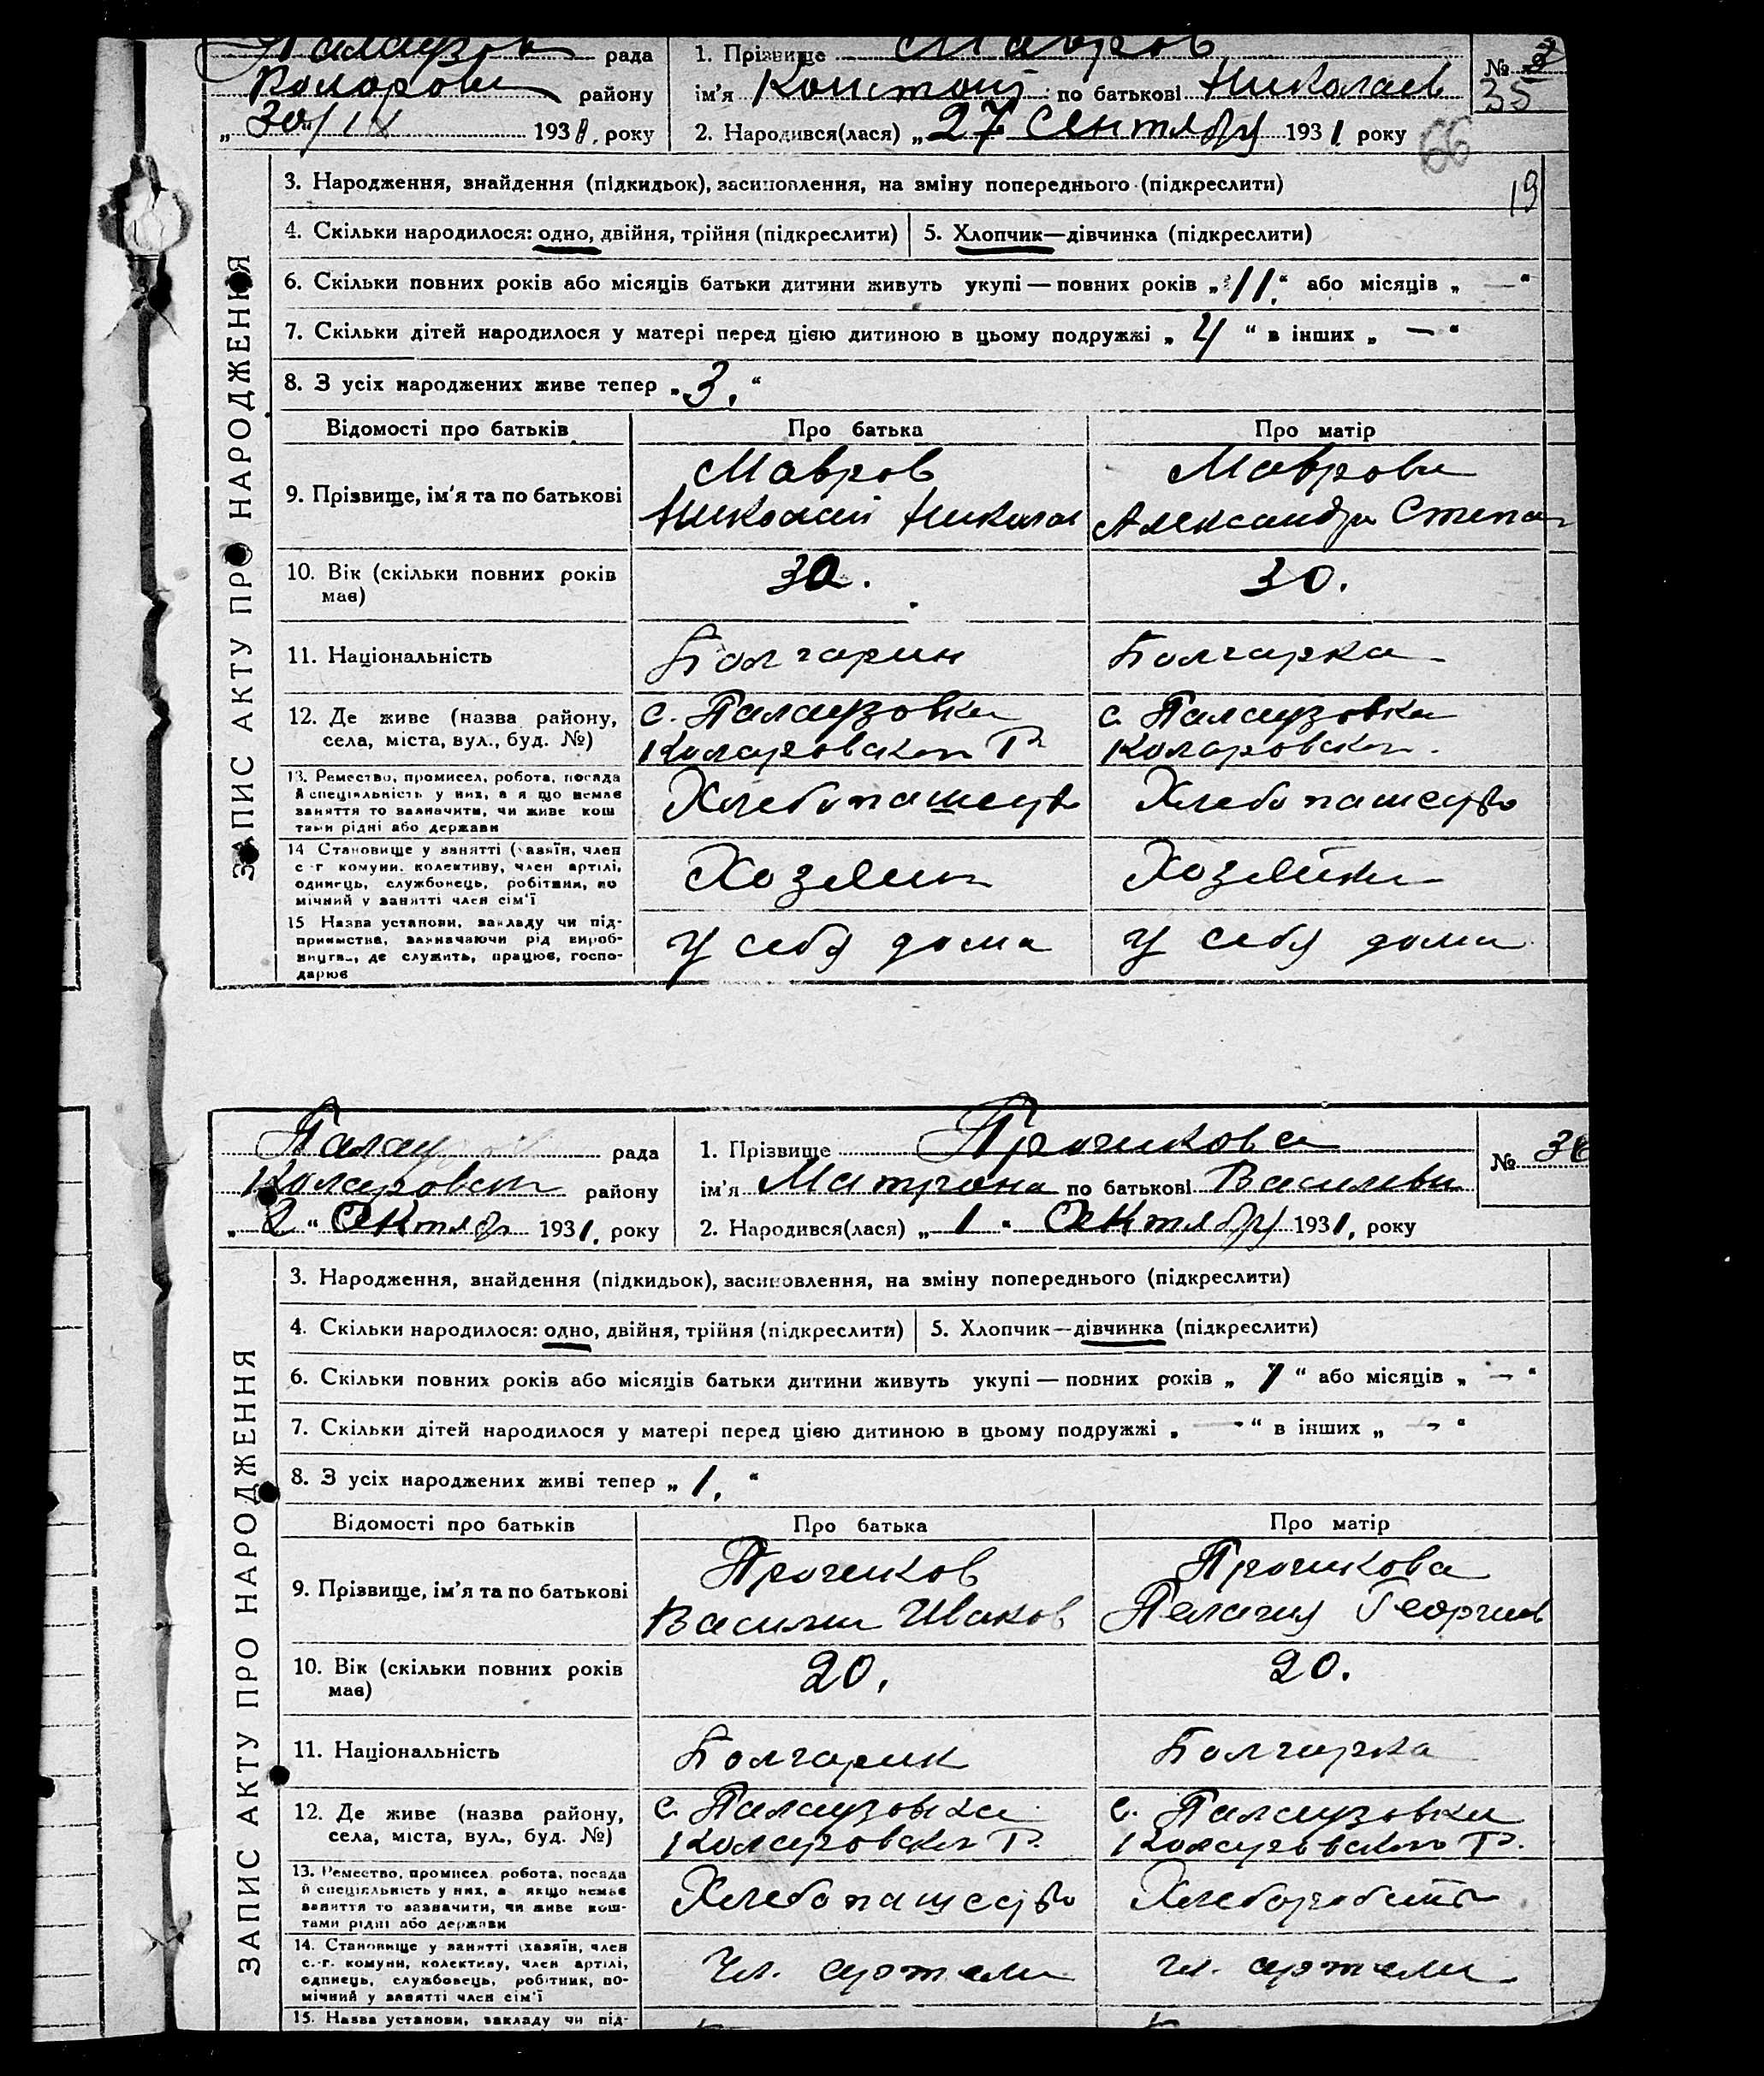 Палаузов рада
Коларовск району
„ 30/IX 1931, року
1. Прізвище Мавров
ім'я Констант по батькові Николаев
2. Народився(лася) „ 27 Сентября 1931 року
№ 35
66
19
ЗАПИС АКТУ ПРО НАРОДЖЕННЯ
3. Народження, знайдення (підкидьок), засиновлення, на зміну попереднього (підкреслити)
4. Скільки народилося: одно, двійня, трійня (підкреслити) 5. Хлопчик—дівчинка (підкреслити)
6. Скільки повних років або місяців батьки дитини живуть укупі — повних років „ 11. “ або місяців „ — “
7. Скільки дітей народилося у матері перед цією дитиною в цьому подружжі „ 4 “ в інших „ — “
8. З усіх народжених живе тепер „ 3. “
Відомості про батьків Про батька Про матір
9. Прізвище, ім'я та по батькові
Мавров
Николай Никола
Маврова
Александра Степан
10. Вік (скільки повних років
має)
30.
11. Національність Болгарин Болгарка
12. Де живе (назва району,
села, міста, вул., буд. №)
с. Палаузовка
Коларовского Р
с. Палаузовка
Коларовского
13. Ремество, промисел, робота, посада
й спеціяльність у них, а я що немає
заняття то зазначити, чи живе кош
тами рідні або держави
Хлебопашеств
Хлебопашество
14 Становище у занятті (хазяїн, член
с -г комуни, колективу, член артілі,
одинець, службовець, робітник, по
мічний у занятті член сім'ї
Хозяин
Хозяйка
15 Назва установи, закладу чи під-
приємства, зазначаючи рід вироб-
ництва, де служить, працює, госпо-
дарює
у себя дома
у себя дома
Палауз рада
Коларовск району
„ 2 “ Октябр 1931, року
1. Прізвище Прочикова
ім'я Матрона по батькові Васильев
2. Народився(лася) „ 1 “ Октября 1931, року
№ 36
ЗАПИС АКТУ ПРО НАРОДЖЕННЯ
3. Народження, знайдення (підкидьок), засиновлення, на зміну попереднього (підкреслити)
4. Скільки народилося: одно, двійня, трійня (підкреслити) 5. Хлопчик—дівчинка (підкреслити)
6. Скільки повних років або місяців батьки дитини живуть укупі — повних років „ 1 “ або місяців „ — “
7. Скільки дітей народилося у матері перед цією дитиною в цьому подружжі „ — “ в інших „ — “
8. З усіх народжених живі тепер „ 1. “
Відомості про батьків Про батька Про матір
9. Прізвище, ім'я та по батькові
Прочиков
Василии Иванов
Прочикова
Пелагия Георгиев
10. Вік (скільки повних років
має)
20.
20.
11. Національність Болгарин Болгарка
12. Де живе (назва району,
села, міста, вул., буд. №)
с. Палаузовка
Коларовского Р.
с. Палаузовка
Коларовского Р.
13. Ремество, промисел робота, посада
й спеціяльність у них, а якщо немає
заняття то зазначити, чи живе кош-
тами рідні або держави
Хлебопашество
Хлеборобств
14. Становище у занятті (хазяїн, член
с.-г. комуни, колективу, член артілі,
одинець, службовець, робітник, по-
мічний у занятті член сім'ї
Чл. артели
чл. артели
15. Назва установи, закладу чи під-